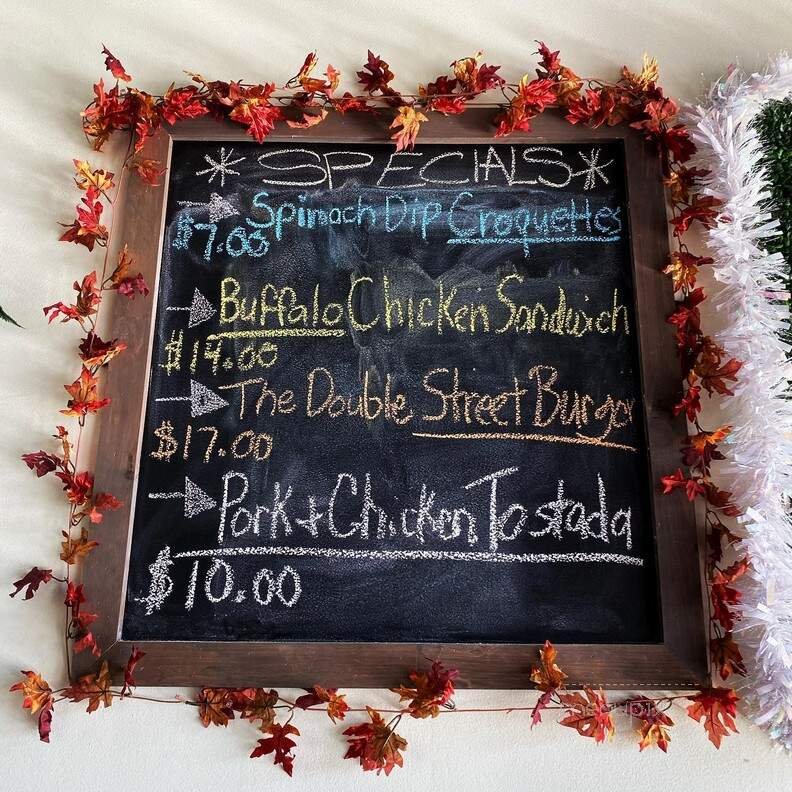 * SPECIALS *
Spinach Dip Croquettes
$7.00
Buffalo Chicken Sandwich
$14.00
The Double Street Burger
$17.00
Pork + Chicken Tostada
$10.00